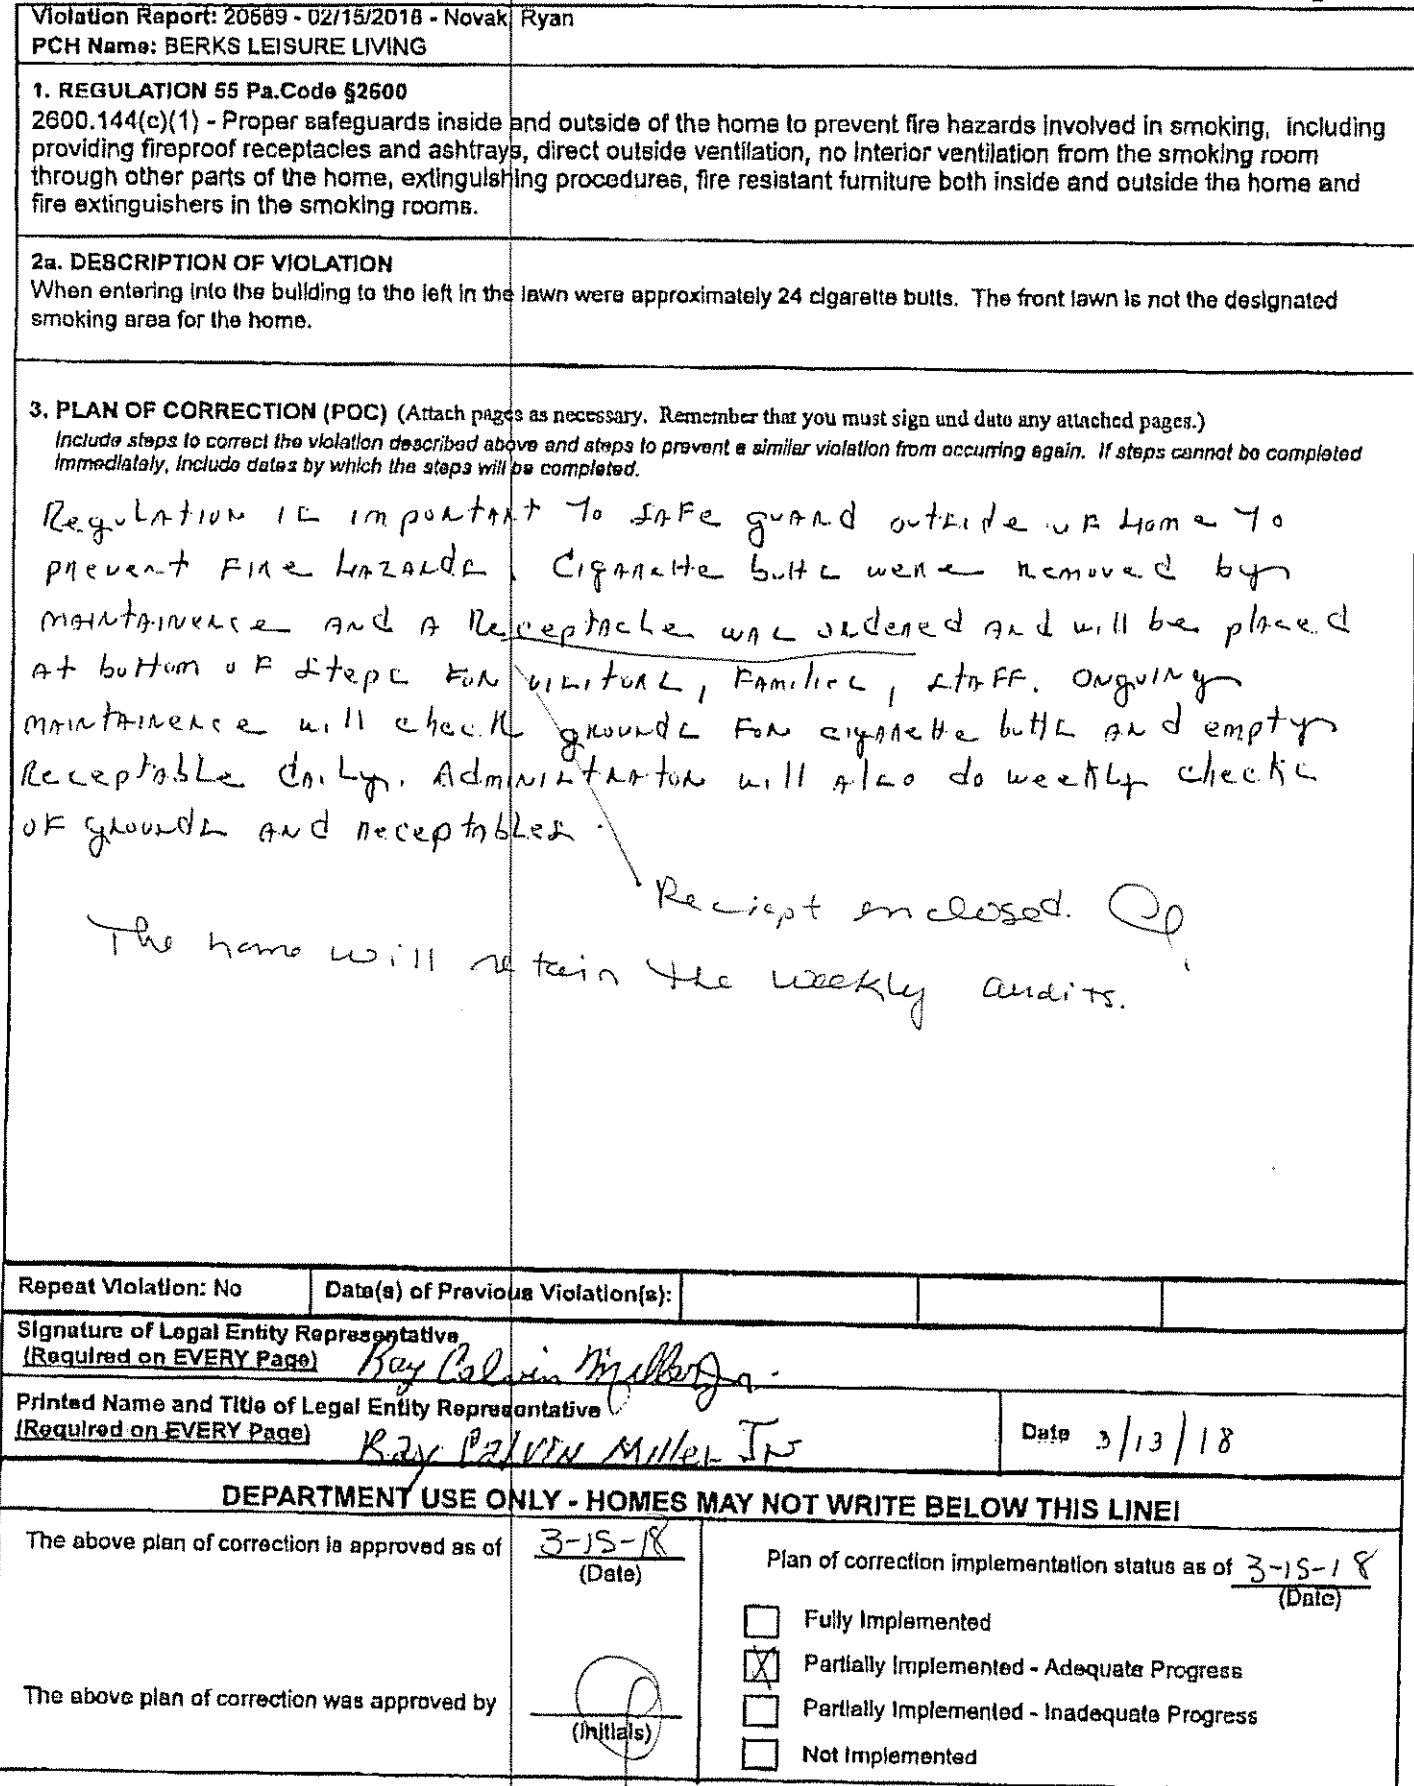 Violation Report: 20689 - 02/15/2018 - Novak, Ryan
PCH Name: BERKS LEISURE LIVING
1. REGULATION 55 Pa.Code §2600
2600.144(c)(1) - Proper safeguards inside and outside of the home to prevent fire hazards involved in smoking, including
providing fireproof receptacles and ashtrays, direct outside ventilation, no interior ventilation from the smoking room
through other parts of the home, extinguishing procedures, fire resistant furniture both inside and outside the home and
fire extinguishers in the smoking rooms.
2a. DESCRIPTION OF VIOLATION
When entering into the building to the left in the lawn were approximately 24 cigarette butts. The front lawn is not the designated
smoking area for the home.
3. PLAN OF CORRECTION (POC) (Attach pages as necessary. Remember that you must sign and date any attached pages.)
Include steps to correct the violation described above and steps to prevent a similar violation from occurring again. If steps cannot be completed
immediately, include dates by which the steps will be completed.
Regulation is important to safe guard outside of home to
prevent fire hazards. Cigarette butts were removed by
maintainence and a Receptacle was ordered and will be placed
at bottom of steps for visitors, families, staff. Ongoing
maintainence will check grounds for cigarette butts and empty
Receptable daily. Administrator will also do weekly checks
of grounds and receptables.
Reciept enclosed.
The home will retain the weekly audits.
Repeat Violation: No
Date(s) of Previous Violation(s):
Signature of Legal Entity Representative
(Required on EVERY Page) Ray Calvin Miller Jr.
Printed Name and Title of Legal Entity Representative
(Required on EVERY Page) Ray Calvin Miller Jr
Date 3/13/18
DEPARTMENT USE ONLY - HOMES MAY NOT WRITE BELOW THIS LINE!
The above plan of correction is approved as of 3-15-18
(Date)
Plan of correction implementation status as of 3-15-18
(Date)
Fully Implemented
X Partially Implemented - Adequate Progress
Partially Implemented - Inadequate Progress
Not Implemented
The above plan of correction was approved by
(Initials)